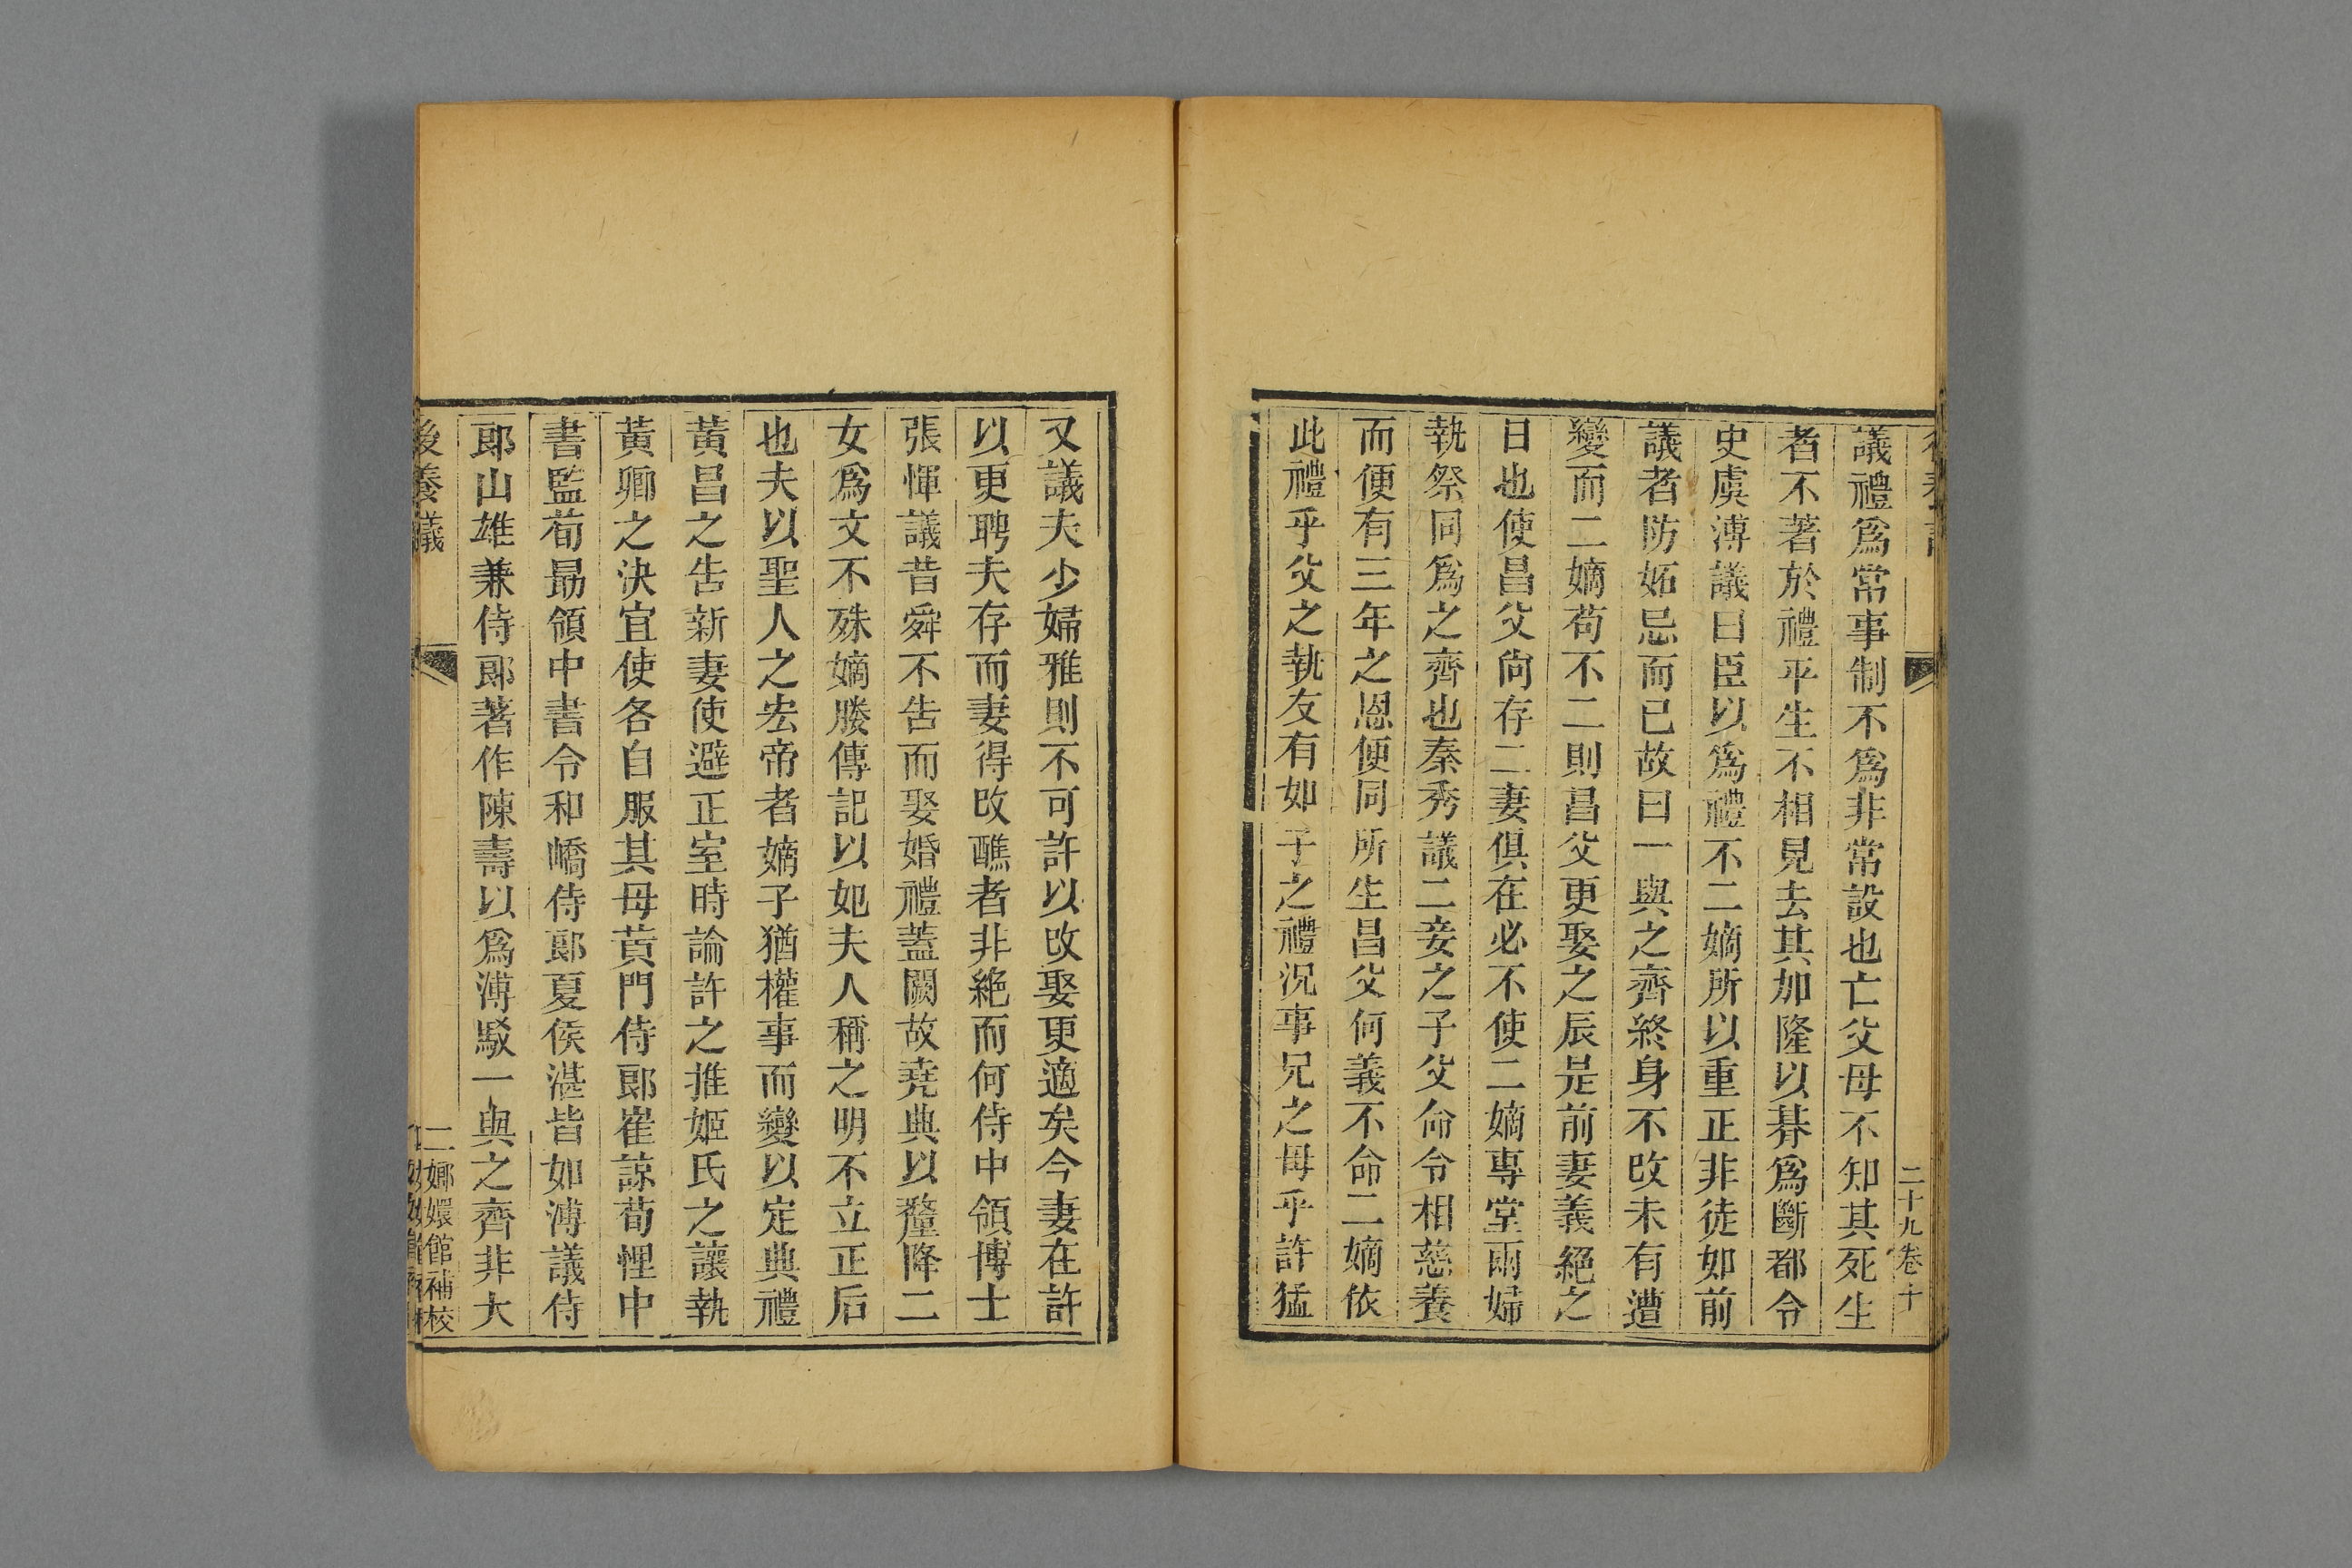 二十九卷十
議禮爲常事制不爲非常設也亡父母不知其死生
者不著於禮平生不相見去其加隆以朞爲斷都令
史虞溥議曰臣以爲禮不二嫡所以重正非徒如前
議者防妬忌而已故曰一與之齊終身不改未有遭
變而二嫡苟不二則昌父更娶之辰是前妻義絕之
日也使昌父尙存二妻俱在必不使二嫡專堂兩婦
執祭同爲之齊也秦秀議二妾之子父命令相慈養
而便有三年之恩便同所生昌父何義不命二嫡依
此禮乎父之執友有如子之禮況事兄之母乎許猛
又議夫少婦稚則不可許以改娶更適矣今妻在許
以更聘夫存而妻得改醮者非絕而何侍中領博士
張惲議昔舜不告而娶婚禮蓋闕故堯典以釐降二
女爲文不殊嫡媵傳記以妃夫人稱之明不立正后
也夫以聖人之宏帝者嫡子猶權事而變以定典禮
黃昌之告新妻使避正室時論許之推姬氏之讓執
黃卿之決宜使各自服其母黃門侍郞崔諒荀悝中
書監荀勗領中書令和嶠侍郞夏侯湛皆如溥議侍
郞山雄兼侍郞著作陳壽以爲溥駁一與之齊非大
後養議
二 嫏嬛館補校